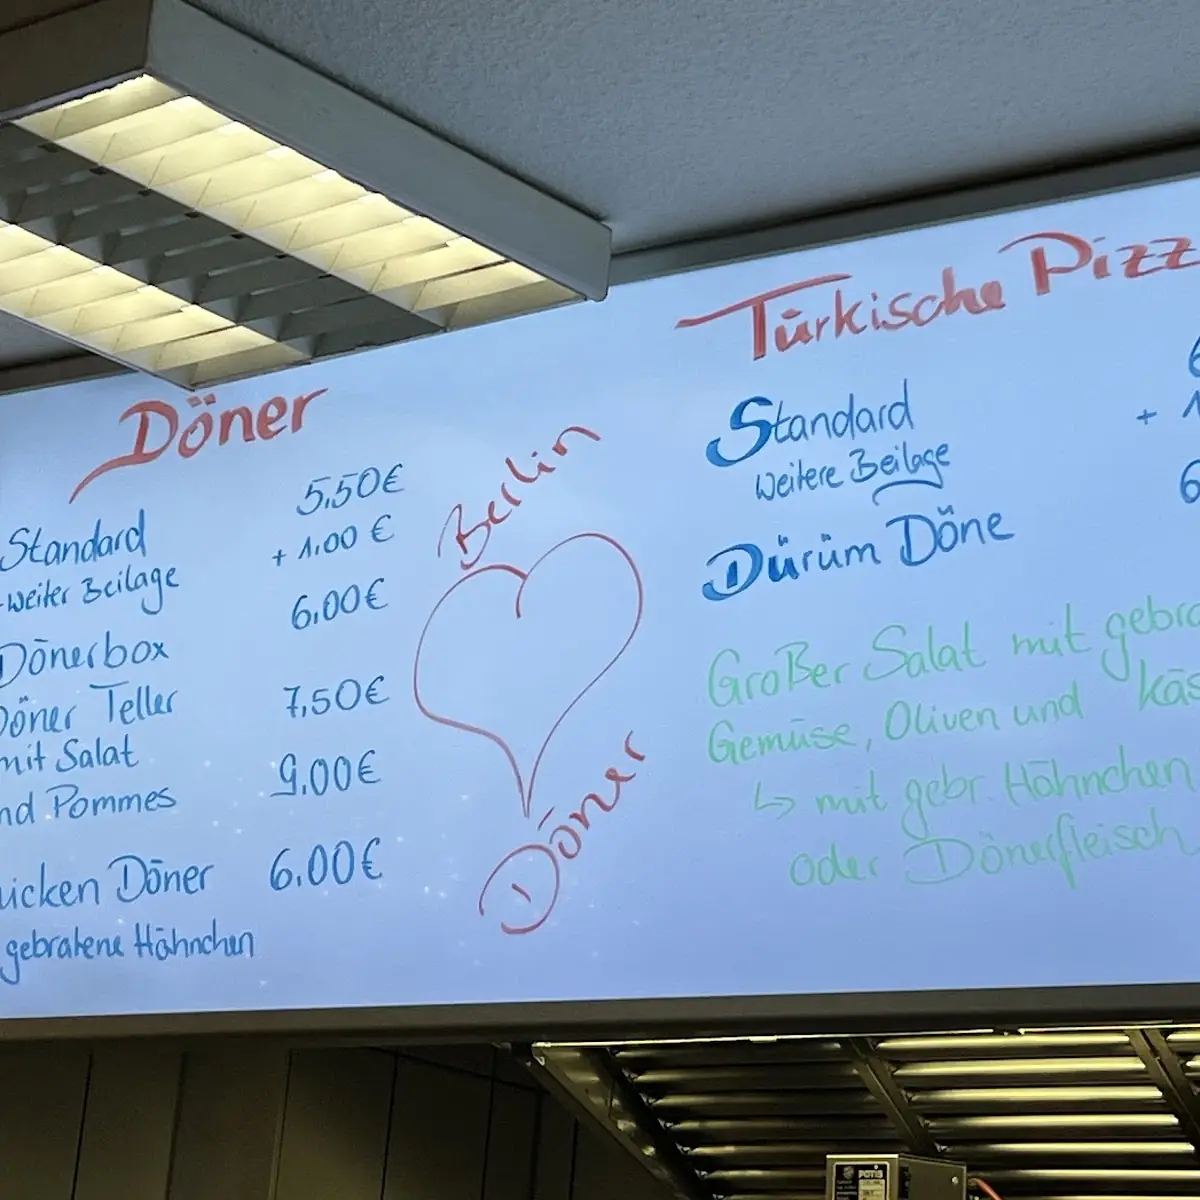 Döner
Standard 5,50€
-weiter Beilage + 1.00 €
Dönerbox 6,00€
Döner Teller 7,50€
mit Salat
nd Pommes 9,00€
icken Döner 6,00€
gebratene Hähnchen
Berlin
Döner
Türkische Pizz
Standard 6
weitere Beilage + 1
Dürüm Döne 6
Großer Salat mit gebra
Gemüse, Oliven und käs
↳ mit gebr. Hähnchen
oder Dönerfleisch
POTIS